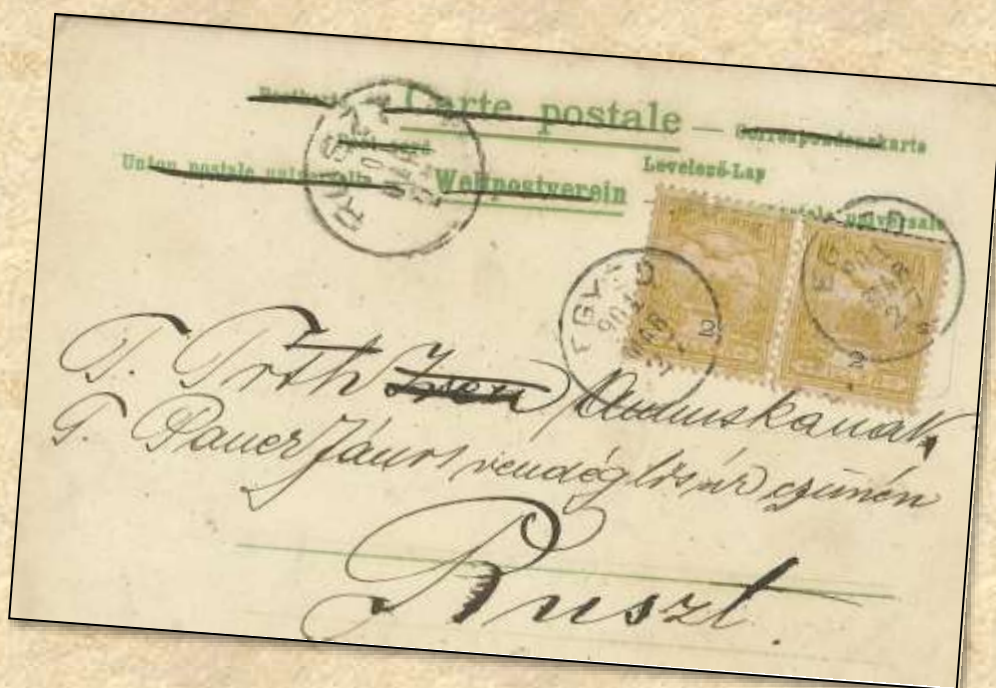 Carte postale — Correspondenzkarte
Levelező-Lap
Union postale universelle Weltpostverein
postale universale
2 2
T. Tóth Annuskának
T. Pauer János vendéglős úr czimén
Ruszt.